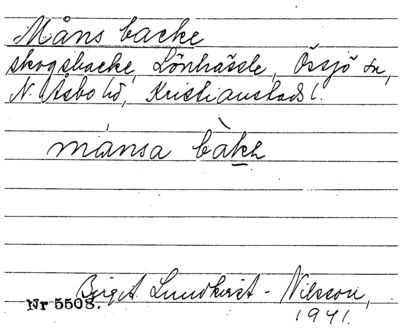 Måns backe
skogsbacke, Lönhässle, Össjö sn,
N. Åsbo hd, Kristianstads l.
månsa bàkə
Birgit Lundkvist - Nilsson,
Nr 5508. 1941.